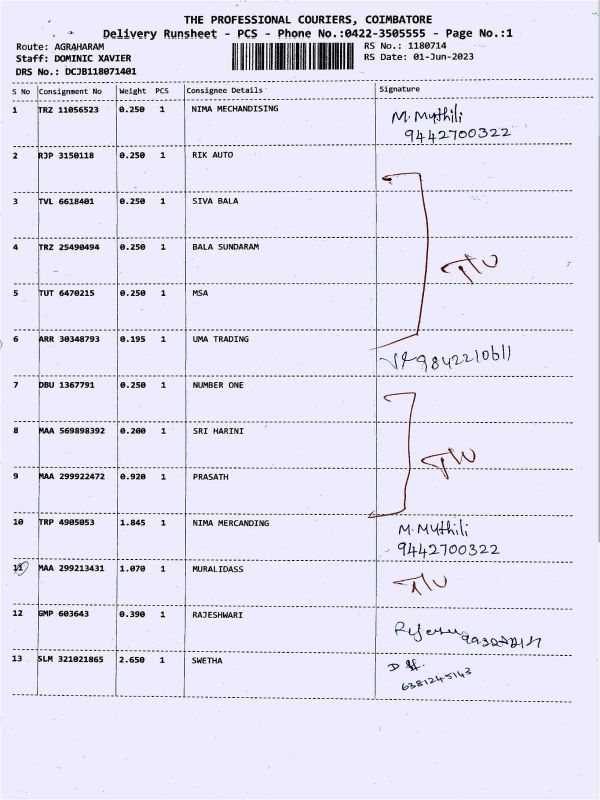 THE PROFESSIONAL COURIERS, COIMBATORE
Delivery Runsheet - PCS - Phone No.:0422-3505555 - Page No.:1
Route: AGRAHARAM RS No.: 1180714
Staff: DOMINIC XAVIER RS Date: 01-Jun-2023
DRS No.: DCJB118071401
S No Consignment No Weight PCS Consignee Details Signature
1 TRZ 11056523 0.250 1 NIMA MECHANDISING M. Mythili
9442700322
2 RJP 3150118 0.250 1 RIK AUTO
3 TVL 6618401 0.250 1 SIVA BALA
4 TRZ 25490494 0.250 1 BALA SUNDARAM
5 TUT 6470215 0.250 1 MSA
6 ARR 30348793 0.195 1 UMA TRADING 9842210611
7 DBU 1367791 0.250 1 NUMBER ONE
8 MAA 569898392 0.200 1 SRI HARINI
9 MAA 299922472 0.920 1 PRASATH
10 TRP 4905053 1.845 1 NIMA MERCANDING M. Mythili
9442700322
11 MAA 299213431 1.070 1 MURALIDASS
12 GMP 603643 0.390 1 RAJESHWARI
13 SLM 321021865 2.650 1 SWETHA
6381245143